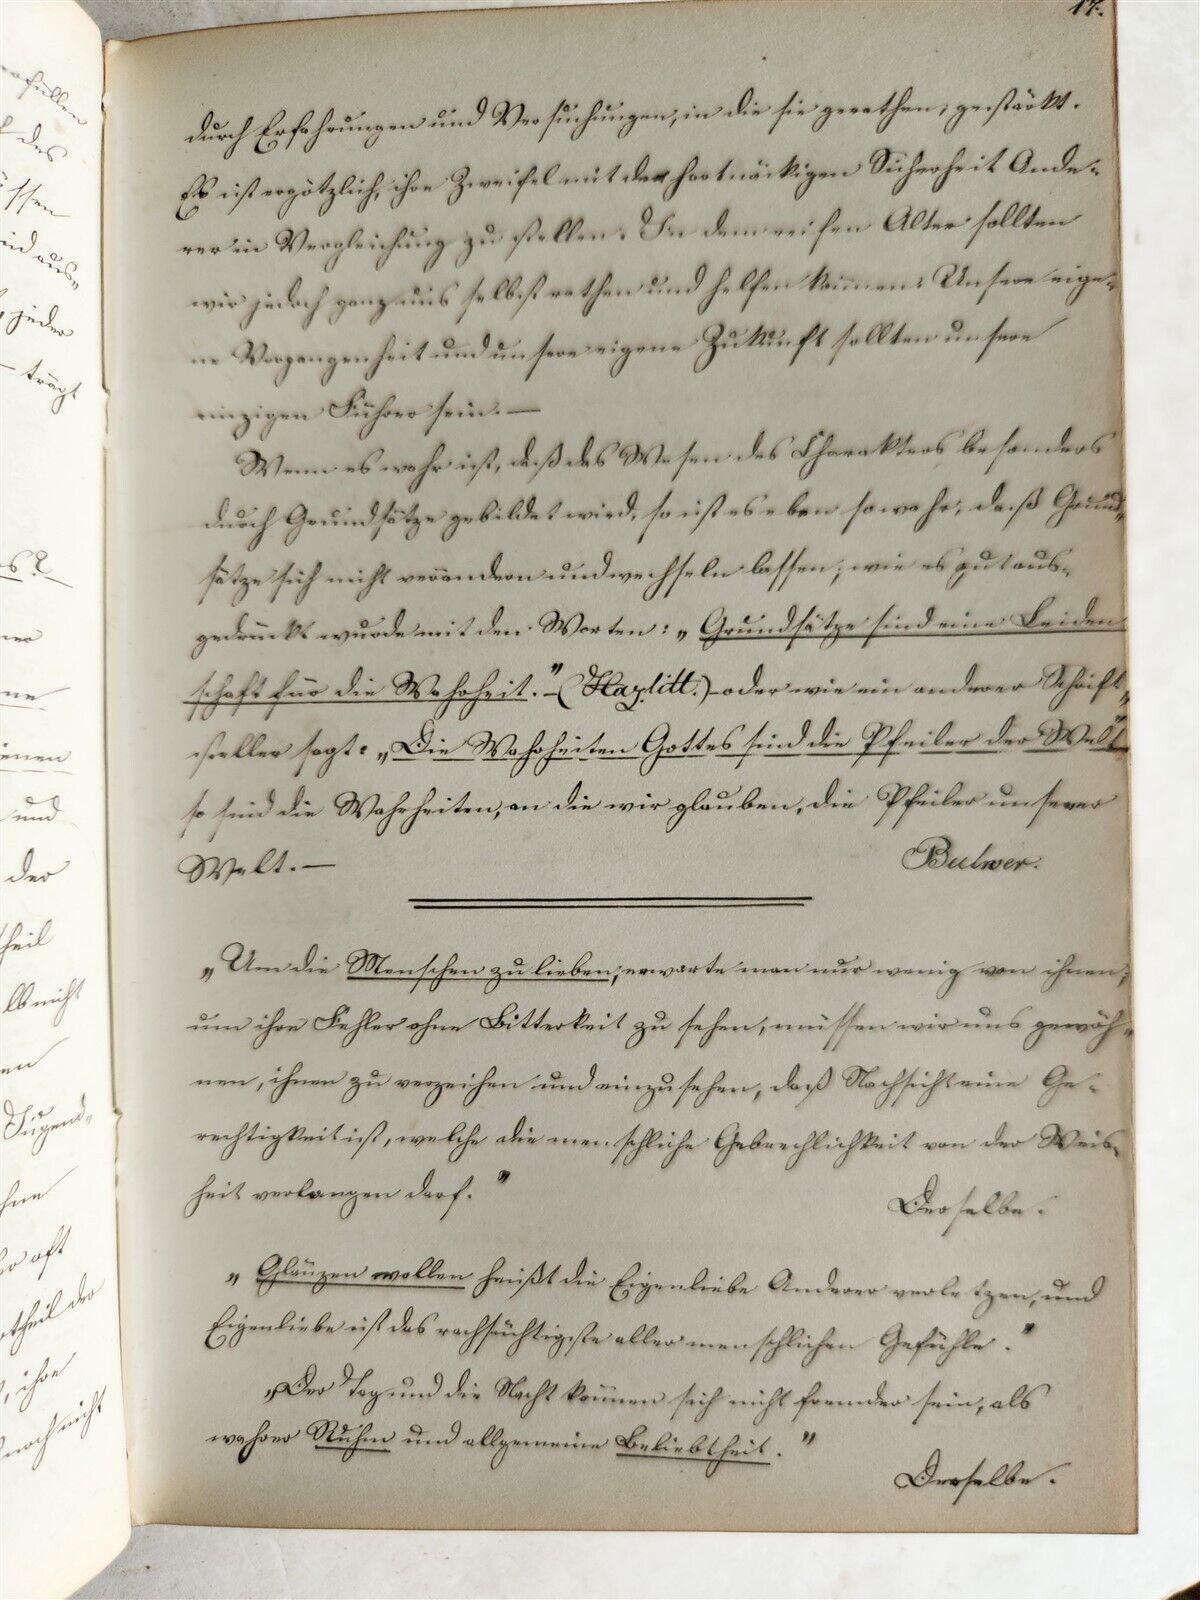 17.
durch Erfahrungen und Versuchungen, in die sie gerathen, gestärkt.
Es ist ergötzlich, ihre Zweifel mit der hartnäckigen Sicherheit Ande-
rer in Vergleichung zu stellen. In dem reifen Alter sollten
wir jedoch ganz uns selbst rathen und helfen können. Unsere eige-
ne Vergangenheit und unsere eigene Zukunft sollten unsere
einzigen Führer sein.—
Wenn es wahr ist, daß das Wesen des Charakters besonders
durch Grundsätze gebildet wird, so ist es eben so wahr, daß Grund-
sätze sich nicht verändern und wechseln lassen; wie es gut aus-
gedrückt wurde mit den Worten: „Grundsätze sind eine Leiden
schaft für die Wahrheit.“—(Hazlitt.)—oder wie ein anderer Schrift-
steller sagt: „Die Wahrheiten Gottes sind die Pfeiler der Welt“
so sind die Wahrheiten, an die wir glauben, die Pfeiler unserer
Welt.— Bulwer.
„Um die Menschen zu lieben, erwarte man nur wenig von ihnen;
um ihre Fehler ohne Bitterkeit zu sehen, müssen wir uns gewöh-
nen, ihnen zu verzeihen und einzusehen, daß Nachsicht eine Ge-
rechtigkeit ist, welche die menschliche Gebrechlichkeit von der Weis-
heit verlangen darf.“
Derselbe.
„Glänzen wollen heißt die Eigenliebe Anderer verletzen, und
Eigenliebe ist das rachsüchtigste aller menschlichen Gefühle.“
„Der Tag und die Nacht können sich nicht fremder sein, als
wahrer Ruhm und allgemeine Beliebtheit.“
Derselbe.
erfüllen
des
üssen
jeder
trägt
ne
und
der
theil
nicht
en
Tugend-
hne
oft
theil der
ihre
noch nicht